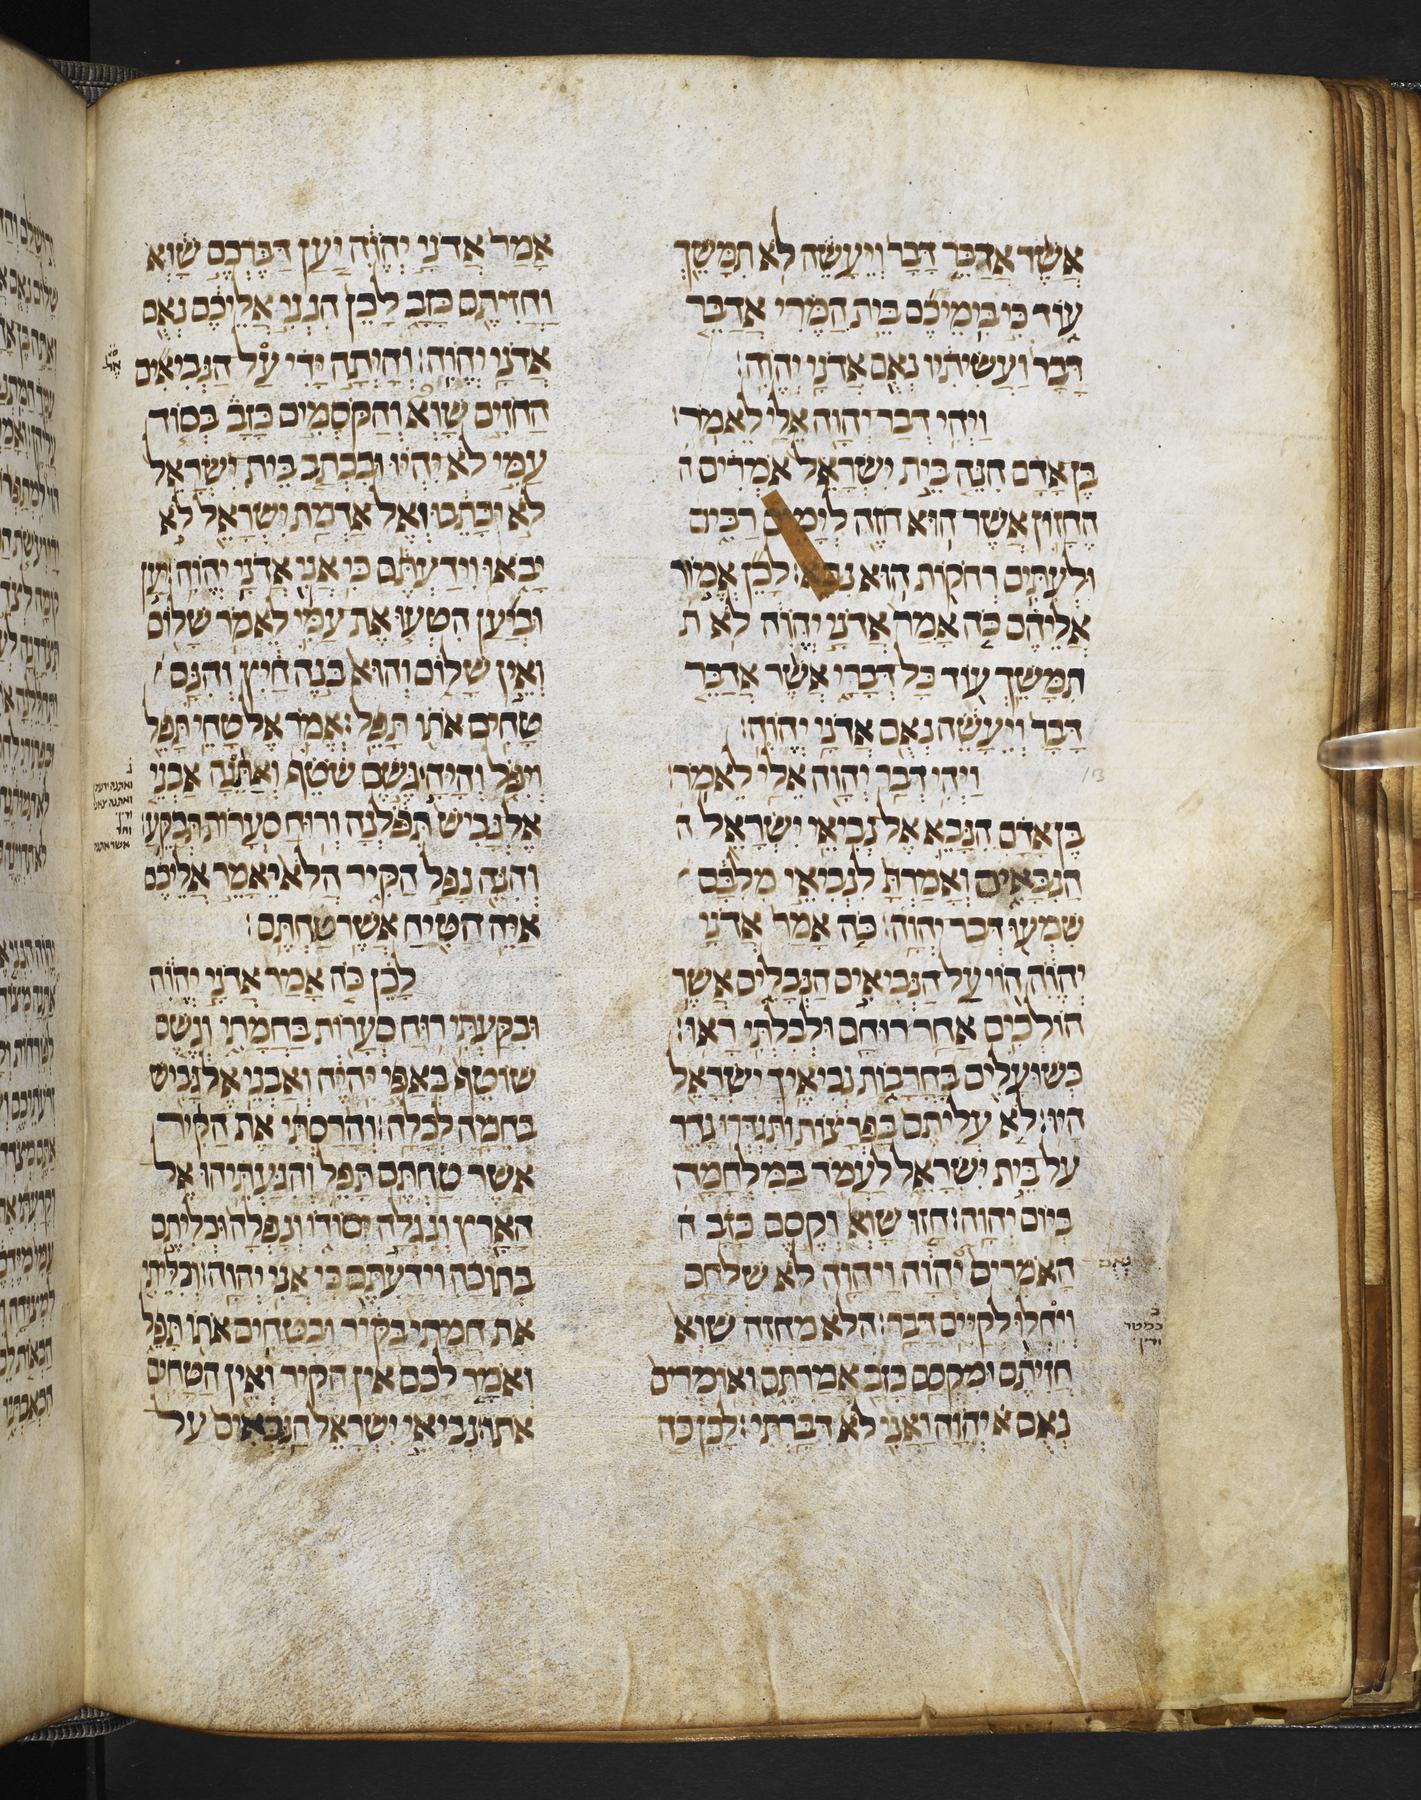 אֲשֶׁר אֲדַבֵּר דָּבָר וְיֵעָשֶׂה לֹא תִמָּשֵׁךְ
עוֹד כִּי בִימֵיכֶם בֵּית הַמֶּרִי אֲדַבֵּר
דָּבָר וַעֲשִׂיתִיו נְאֻם אֲדֹנָי יְהוִה׃
וַיְהִי דְבַר יְהוָה אֵלַי לֵאמֹר׃
בֶּן אָדָם הִנֵּה בֵית יִשְׂרָאֵל אֹמְרִים ה
הֶחָזוֹן אֲשֶׁר הוּא חֹזֶה לְיָמִים רַבִּים
וּלְעִתִּים רְחֹקוֹת הוּא נִבָּא׃ לָכֵן אֱמֹר
אֲלֵיהֶם כֹּה אָמַר אֲדֹנָי יְהוִה לֹא ת
תִמָּשֵׁךְ עוֹד כָּל דְּבָרָי אֲשֶׁר אֲדַבֵּר
דָּבָר וְיֵעָשֶׂה נְאֻם אֲדֹנָי יְהוִה׃
וַיְהִי דְבַר יְהוָה אֵלַי לֵאמֹר׃
בֶּן אָדָם הִנָּבֵא אֶל נְבִיאֵי יִשְׂרָאֵל ה
הַנִּבָּאִים וְאָמַרְתָּ לִנְבִיאֵי מִלִּבָּם
שִׁמְעוּ דְּבַר יְהוָה׃ כֹּה אָמַר אֲדֹנָי
יְהוִה הוֹי עַל הַנְּבִיאִים הַנְּבָלִים אֲשֶׁר
הוֹלְכִים אַחַר רוּחָם וּלְבִלְתִּי רָאוּ׃
כְּשׁוּעָלִים בָּחֳרָבוֹת נְבִיאֶיךָ יִשְׂרָאֵל
הָיוּ׃ לֹא עֲלִיתֶם בַּפְּרָצוֹת וַתִּגְדְּרוּ גָדֵר
עַל בֵּית יִשְׂרָאֵל לַעֲמֹד בַּמִּלְחָמָה
בְּיוֹם יְהוָה׃ חָזוּ שָׁוְא וְקֶסֶם כָּזָב ה
הָאֹמְרִים יְהוָה וַיהוָה לֹא שְׁלָחָם
וְיִחֲלוּ לְקַיֵּם דָּבָר׃ הֲלֹא מַחֲזֵה שָׁוְא
חֲזִיתֶם וּמִקְסַם כָּזָב אֲמַרְתֶּם וְאוֹמְרִים
נְאֻם יְהוָה וַאֲנִי לֹא דִבַּרְתִּי׃ לָכֵן כֹּה
כמטר
אָמַר אֲדֹנָי יְהוִה יַעַן דַּבֶּרְכֶם שָׁוְא
וַחֲזִיתֶם כָּזָב לָכֵן הִנְנִי אֲלֵיכֶם נְאֻם
אֲדֹנָי יְהוִה׃ וְהָיְתָה יָדִי עַל הַנְּבִיאִים
הַחֹזִים שָׁוְא וְהַקֹּסְמִים כָּזָב בְּסוֹד
עַמִּי לֹא יִהְיוּ וּבִכְתָב בֵּית יִשְׂרָאֵל
לֹא יִכָּתֵבוּ וְאֶל אַדְמַת יִשְׂרָאֵל לֹא
יָבֹאוּ וִידַעְתֶּם כִּי אֲנִי אֲדֹנָי יְהוִה׃ יַעַן
וּבְיַעַן הִטְעוּ אֶת עַמִּי לֵאמֹר שָׁלוֹם
וְאֵין שָׁלוֹם וְהוּא בֹּנֶה חַיִץ וְהִנָּם
טָחִים אֹתוֹ תָּפֵל׃ אֱמֹר אֶל טָחֵי תָפֵל
וְיִפֹּל וְהָיָה גֶּשֶׁם שֹׁטֵף וְאַתֵּנָה אַבְנֵי
אֶלְגָּבִישׁ תִּפֹּלְנָה וְרוּחַ סְעָרוֹת תְּבַקֵּעַ׃
וְהִנֵּה נָפַל הַקִּיר הֲלֹא יֵאָמֵר אֲלֵיכֶם
אַיֵּה הַטִּיחַ אֲשֶׁר טַחְתֶּם׃
לָכֵן כֹּה אָמַר אֲדֹנָי יְהוִה
וּבִקַּעְתִּי רוּחַ סְעָרוֹת בַּחֲמָתִי וְגֶשֶׁם
שׁוֹטֵף בְּאַפִּי יִהְיֶה וְאַבְנֵי אֶלְגָּבִישׁ
בְּחֵמָה לְכָלָה׃ וְהָרַסְתִּי אֶת הַקִּיר
אֲשֶׁר טַחְתֶּם תָּפֵל וְהִגַּעְתִּיהוּ אֶל
הָאָרֶץ וְנִגְלָה יְסוֹדוֹ וְנָפְלָה וּכְלִיתֶם
בְּתוֹכָהּ וִידַעְתֶּם כִּי אֲנִי יְהוָה׃ וְכִלֵּיתִי
אֶת חֲמָתִי בַּקִּיר וּבַטָּחִים אֹתוֹ תָּפֵל
וְאֹמַר לָכֶם אֵין הַקִּיר וְאֵין הַטָּחִים
אֹתוֹ׃ נְבִיאֵי יִשְׂרָאֵל הַנִּבְּאִים עַל